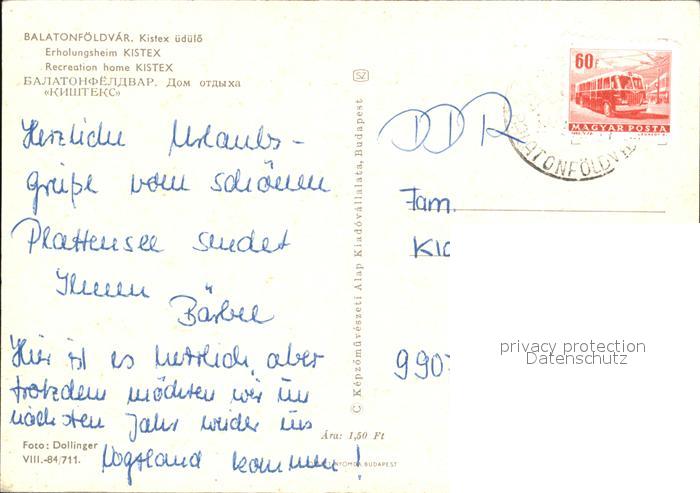 BALATONFÖLDVÁR. Kistex üdülő
Erholungsheim KISTEX
Recreation home KISTEX
БАЛАТОНФЁЛДВАР. Дом отдыха
«КИШТЕКС»
Herzliche Urlaubs-
grüße vom schönen
Plattensee sendet
Ihnen
Bärbel
Hier ist es herrlich, aber
trotzdem möchten wir im
nächsten Jahr wieder ins
Vogtland kommen!
Foto: Dollinger
VIII.-84/711.
Ára: 1,50 Ft
SZ
© Képzőművészeti Alap Kiadóvállalata, Budapest
DDR
60f
MAGYAR POSTA
BALATONFÖLDVÁR
Fam.
990
privacy protection
Datenschutz